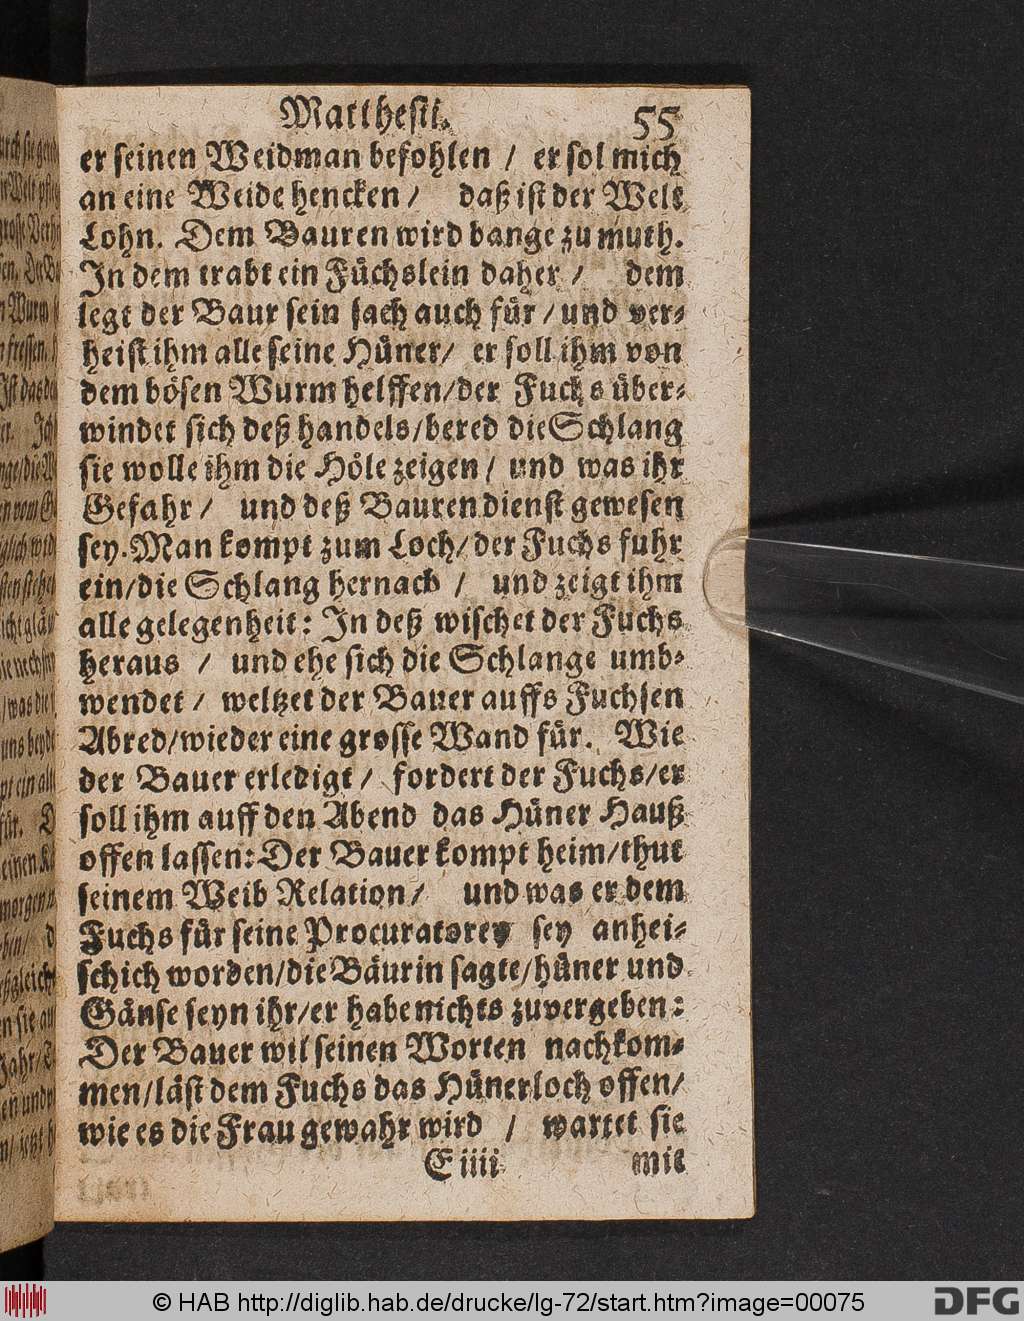 Matthesii.
55
er seinen Weidman befohlen / er sol mich
an eine Weide hencken / daß ist der Welt
Lohn. Dem Bauren wird bange zu muth.
In dem trabt ein Füchslein daher / dem
legt der Baur sein sach auch für / und ver-
heist ihm alle seine Hüner / er soll ihm von
dem bösen Wurm helffen / der Fuchs über-
windet sich deß handels / bered die Schlang
sie wolle ihm die Höle zeigen / und was ihr
Gefahr / und deß Bauren dienst gewesen
sey. Man kompt zum Loch / der Fuchs fuhr
ein / die Schlang hernach / und zeigt ihm
alle gelegenheit: In deß wischet der Fuchs
heraus / und ehe sich die Schlange umb-
wendet / weltzet der Bauer auffs Fuchsen
Abred / wieder eine grosse Wand für. Wie
der Bauer erledigt / fordert der Fuchs / er
soll ihm auff den Abend das Hüner Hauß
offen lassen: Der Bauer kompt heim / thut
seinem Weib Relation / und was er dem
Fuchs für seine Procuratorey sey anhei-
schich worden / die Bäurin sagte / hüner und
Gänse seyn ihr / er habe nichts zuvergeben:
Der Bauer wil seinen Worten nachkom-
men / läst dem Fuchs das Hünerloch offen /
wie es die Frau gewahr wird / wartet sie
E iiii
mit
© HAB http://diglib.hab.de/drucke/lg-72/start.htm?image=00075
DFG